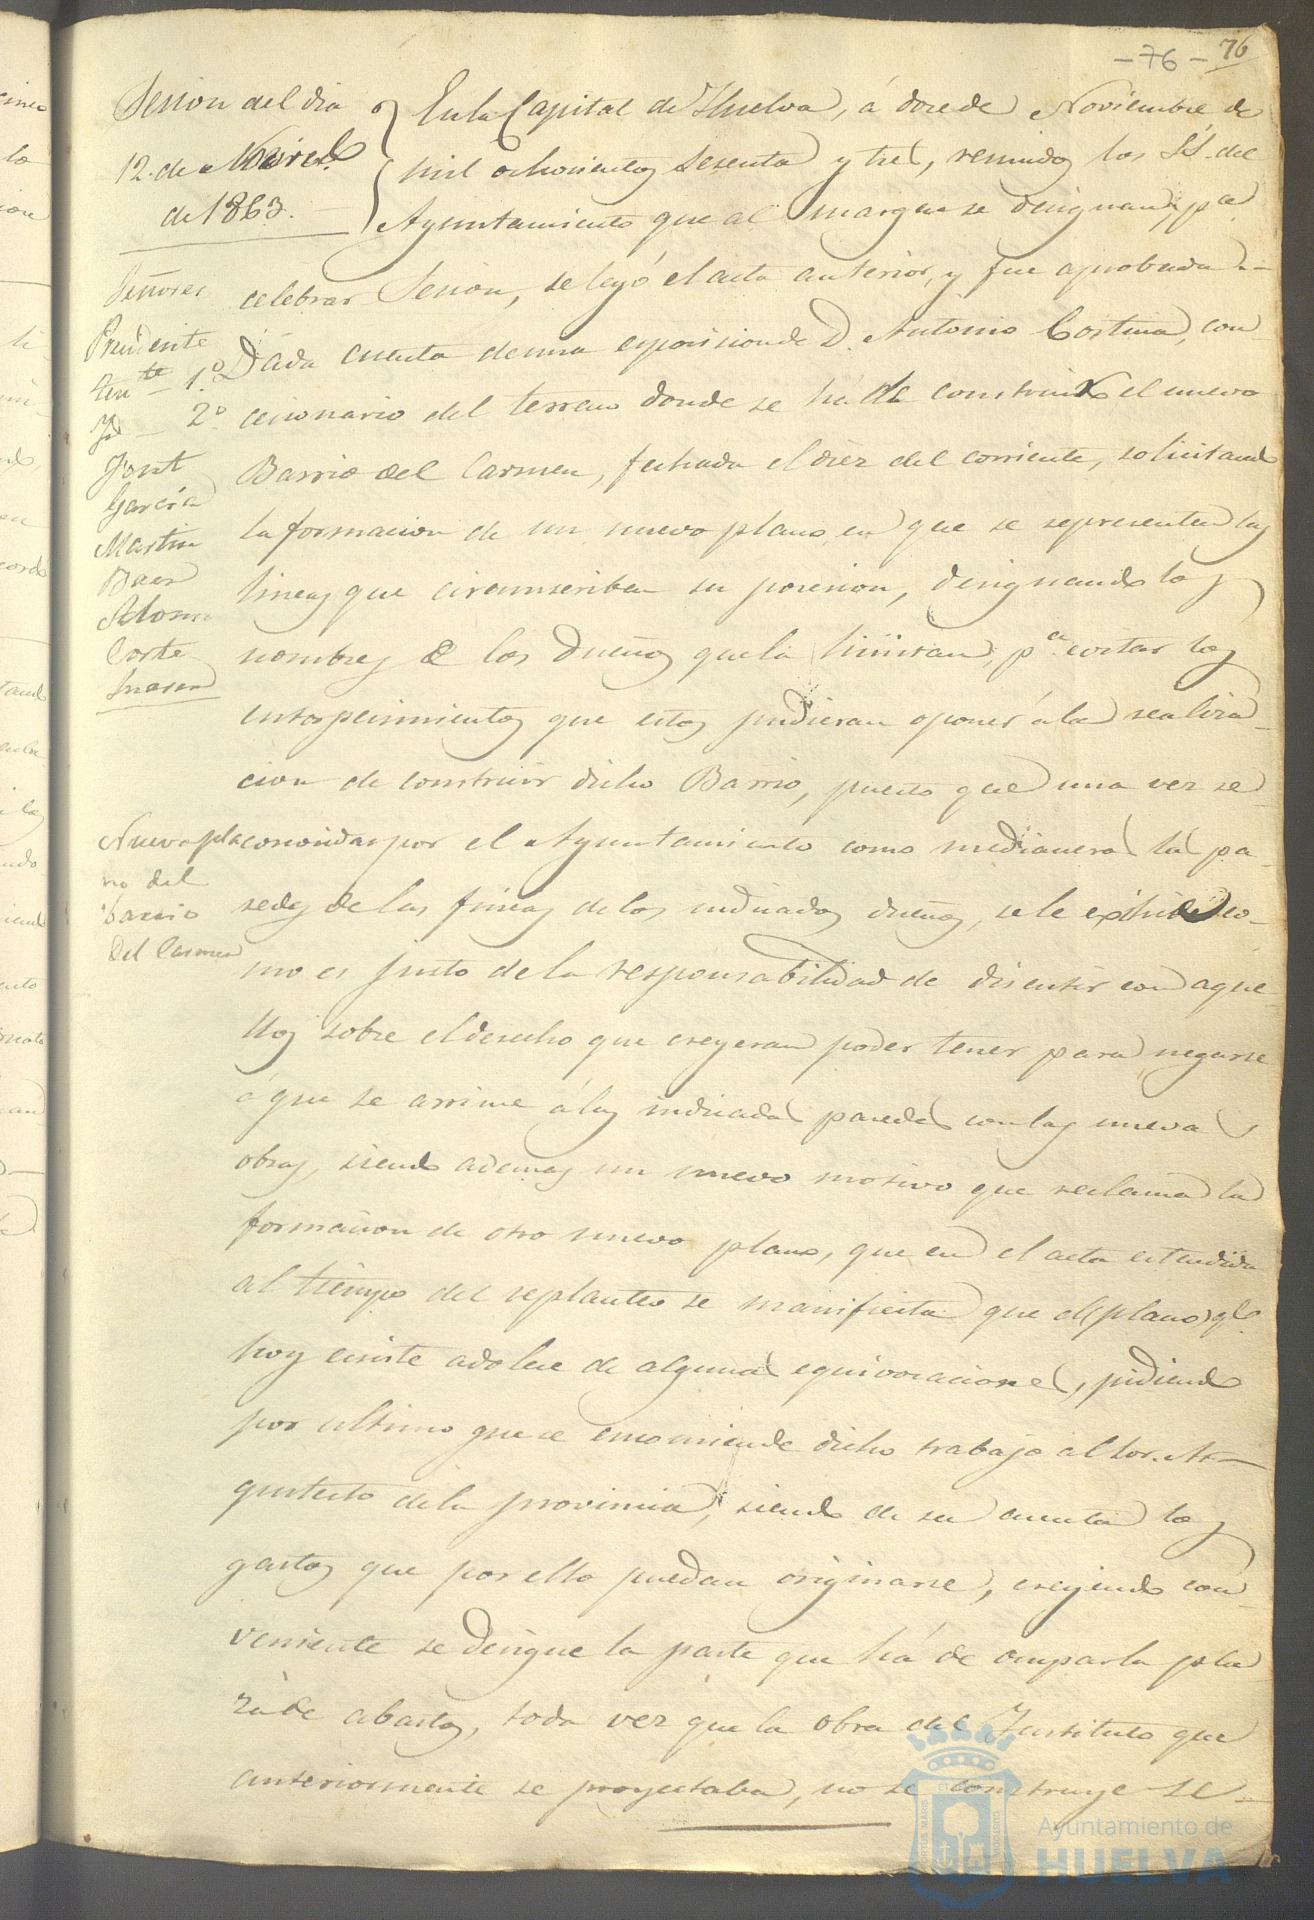 - 76 - 76
Sesion del dia
12. de Novre.
de 1863.
Señores
Presidente
Tente 1.º
Yd 2.º
Font
García
Martin
Baer
Alonso
Corte
Nuevo pla
no del
barrio
del Carmen
En la Capital de Huelva, á doce de Noviembre de
mil ochocientos sesenta y tres, reunidos los SS. del
Ayuntamiento que al margen se designan, pa
celebrar Sesion, se leyó el acta anterior, y fue aprobada.
Dada cuenta de una esposicion de D. Antonio Cortina, con-
cesionario del terreno donde se há de construir el nuevo
Barrio del Carmen, fechada el diez del corriente, solicitando
la formacion de un nuevo plano, en que se representen las
lineas que circunscriben su posesion, designando los
nombres de los Dueños que la limitan, pa. evitar los
entorpecimientos que estos pudieran oponer á la realiza-
cion de construir dicho Barrio, puesto que una vez re-
conocidas por el Ayuntamiento como medianeras las pa-
redes de las fincas de los indicados dueños, se le exhime co-
mo es justo de la responsabilidad de discutir con aque-
llos sobre el derecho que creyeran poder tener para negarse
á que se arrime á las indicadas paredes con las nuevas
obras, siendo ademas un nuevo motivo que reclama la
formacion de otro nuevo plano, que en el acta estendida
al tiempo del replanteo se manifiesta que el plano qe.
hoy existe adolece de algunas equivocaciones, pidiendo
por ultimo que se encomiende dicho trabajo al Sor. Ar-
quitecto de la provincia, siendo de su cuenta los
gastos que por ello puedan originarse, creyendo con-
veniente se designe la parte que há de ocupar la pla
za de abastos, toda vez que la obra del Instituto que
anteriormente se proyectaba, no se construye se-
Ayuntamiento de
HUELVA